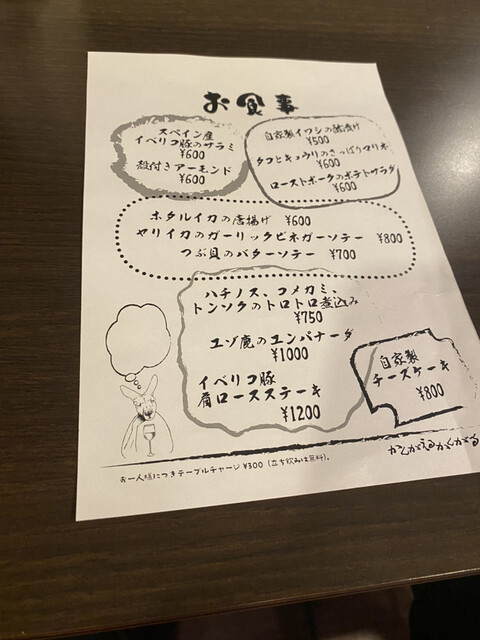 お食事
スペイン産
イベリコ豚のサラミ
¥600
殻付きアーモンド
¥600
自家製イワシの酢漬け
¥500
タコとキュウリのさっぱりマリネ
¥600
ローストポークのポテトサラダ
¥600
ホタルイカの唐揚げ ¥600
ヤリイカのガーリックビネガーソテー ¥800
つぶ貝のバターソテー ¥700
ハチノス、コメカミ、
トンソクのトロトロ煮込み
¥750
エゾ鹿のエンパナーダ
¥1000
イベリコ豚
肩ロースステーキ
¥1200
自家製
チーズケーキ
¥800
かんがえるかんがる
お一人様につきテーブルチャージ¥300(立ち飲みは無料)。